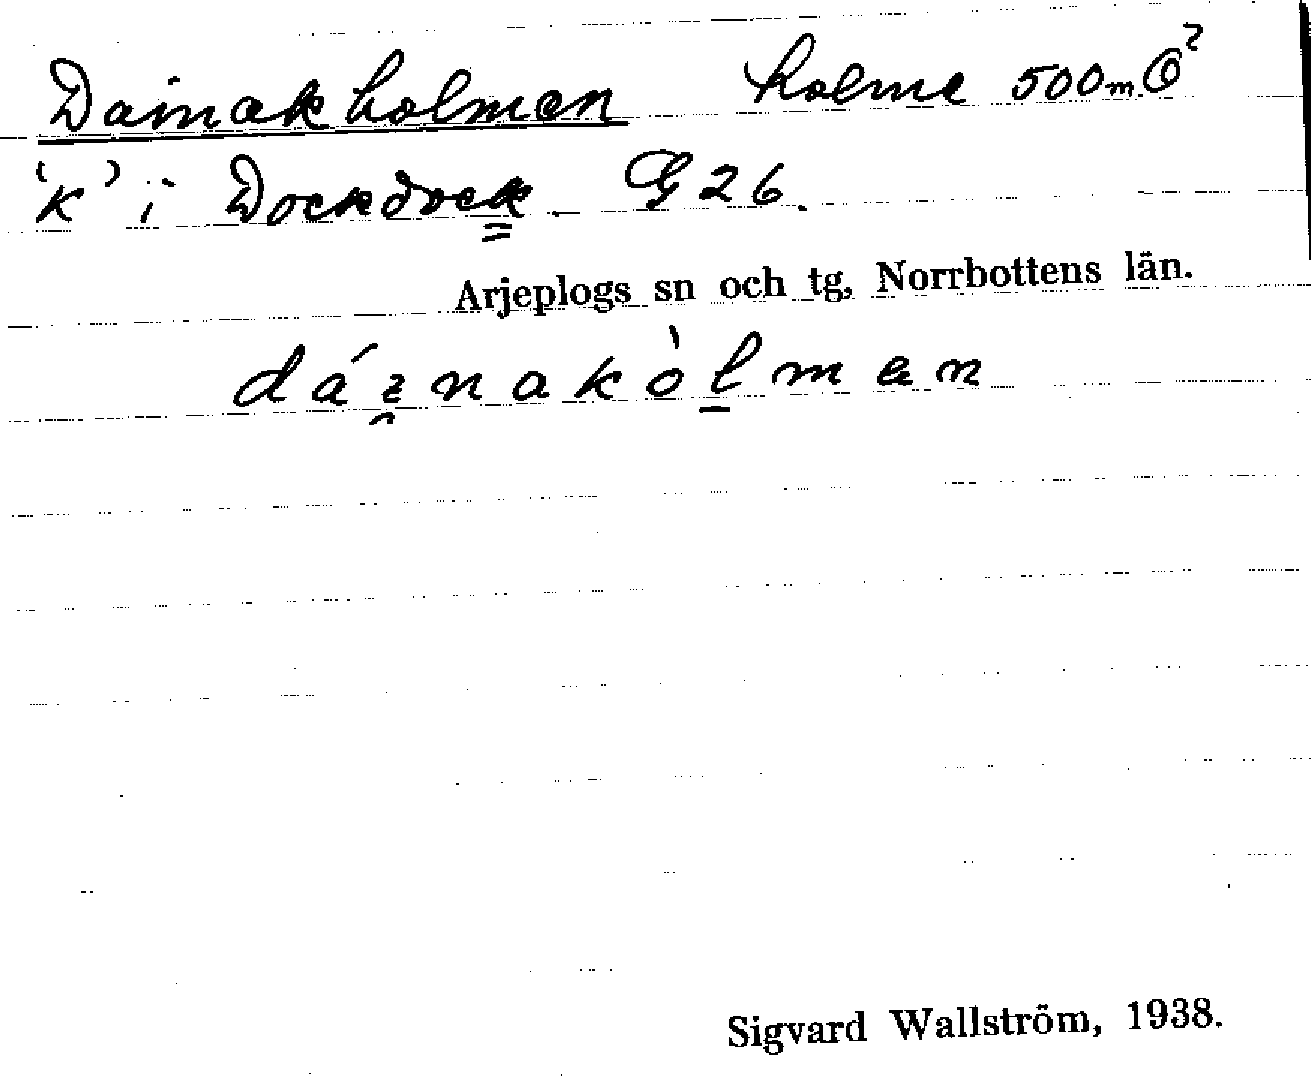 Dainakholmen holme 500 m Ö?
'K' i Dockdock. G 26.
Arjeplogs sn och tg, Norrbottens län.
Sigvard Wallström, 1938.